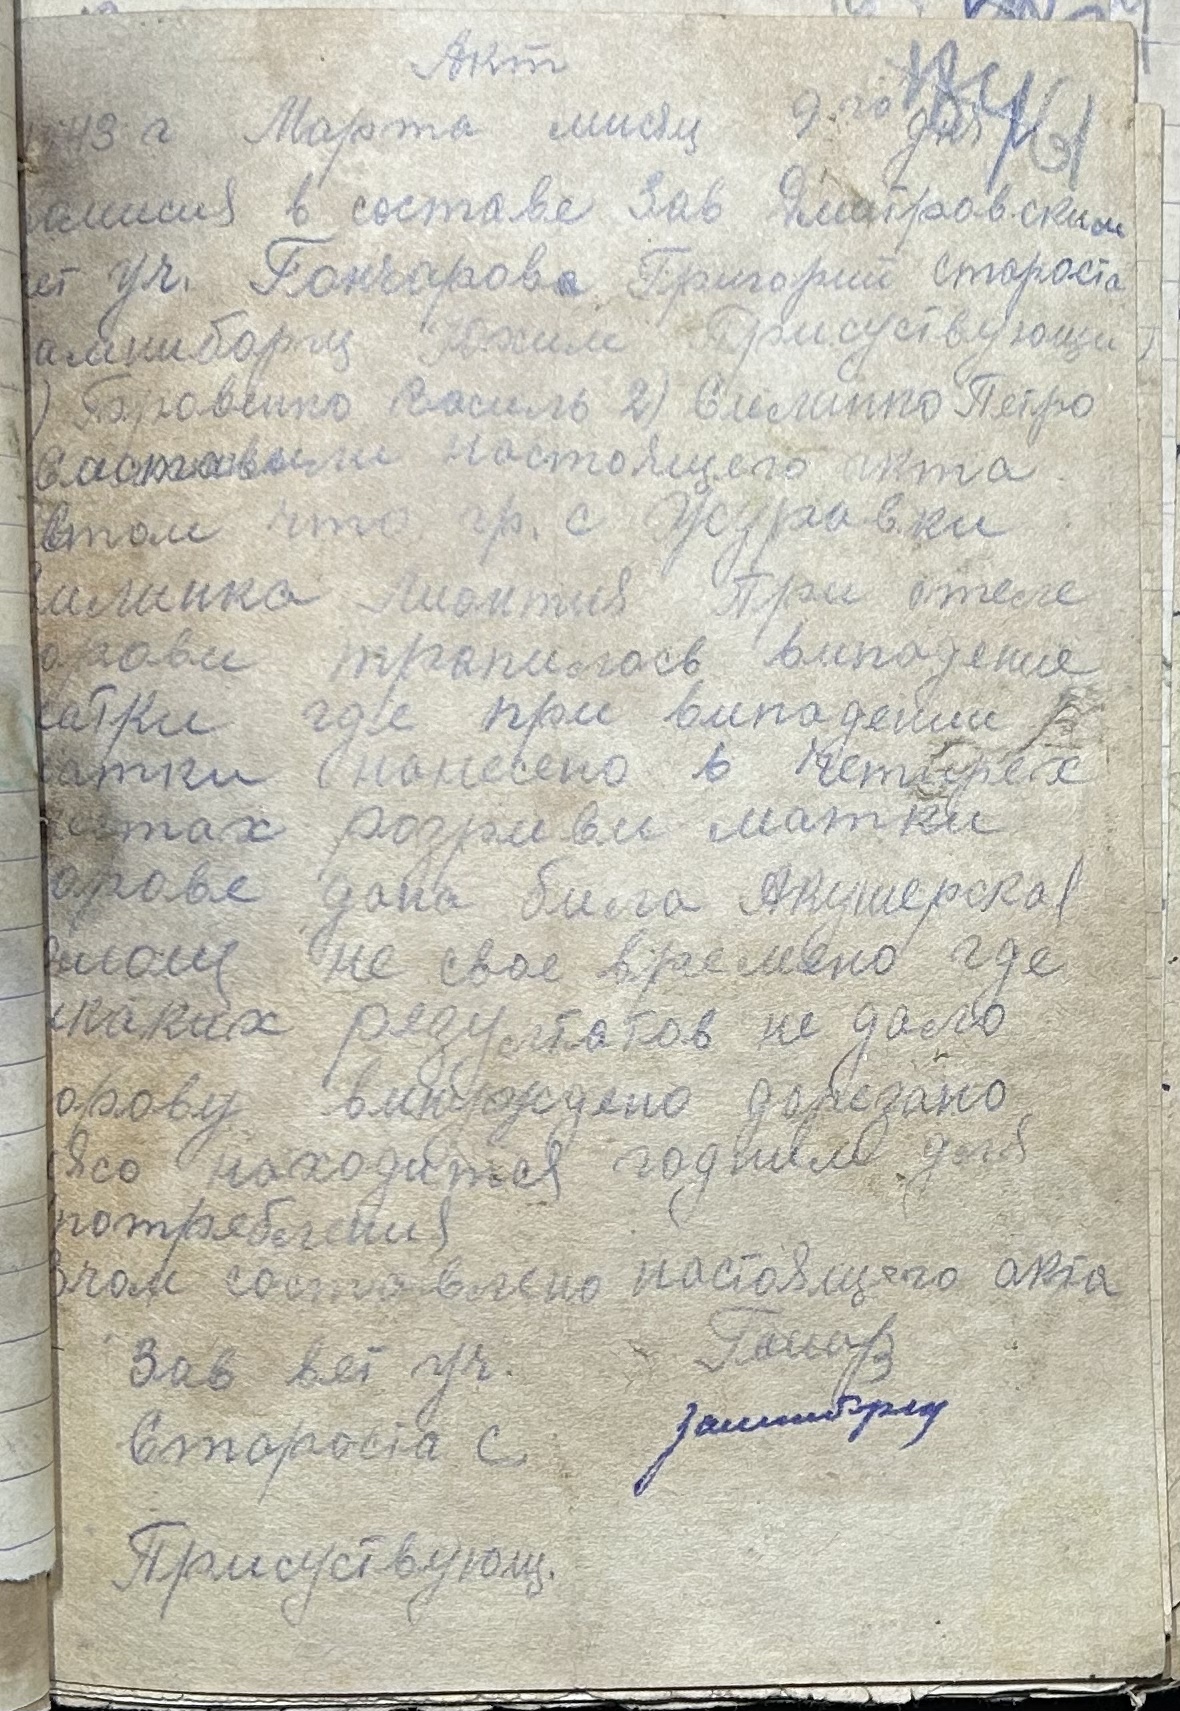 Акт
43 г Марта мисяц 9.го дня
амисия в составе Зав Дмитровским
ет уч. Гончарова Григорий Староста
Юхим Присуствующи
) Боровенко Василь 2) Силинко Петро
настоящего акта
втом что гр. с Журавки
При отеле
орови трапилось випадение
атки где при випадении
атки нанесено в четирех
стах розриви матки
орове дана била Акушерская
омощ не свое времено где
икаких резултатов не дало
орову винуждено дорезано
ясо находится годним для
потребления
вчом составлено настоящего акта
Зав вет уч. Гончар
Староста с.
Присуствующ.